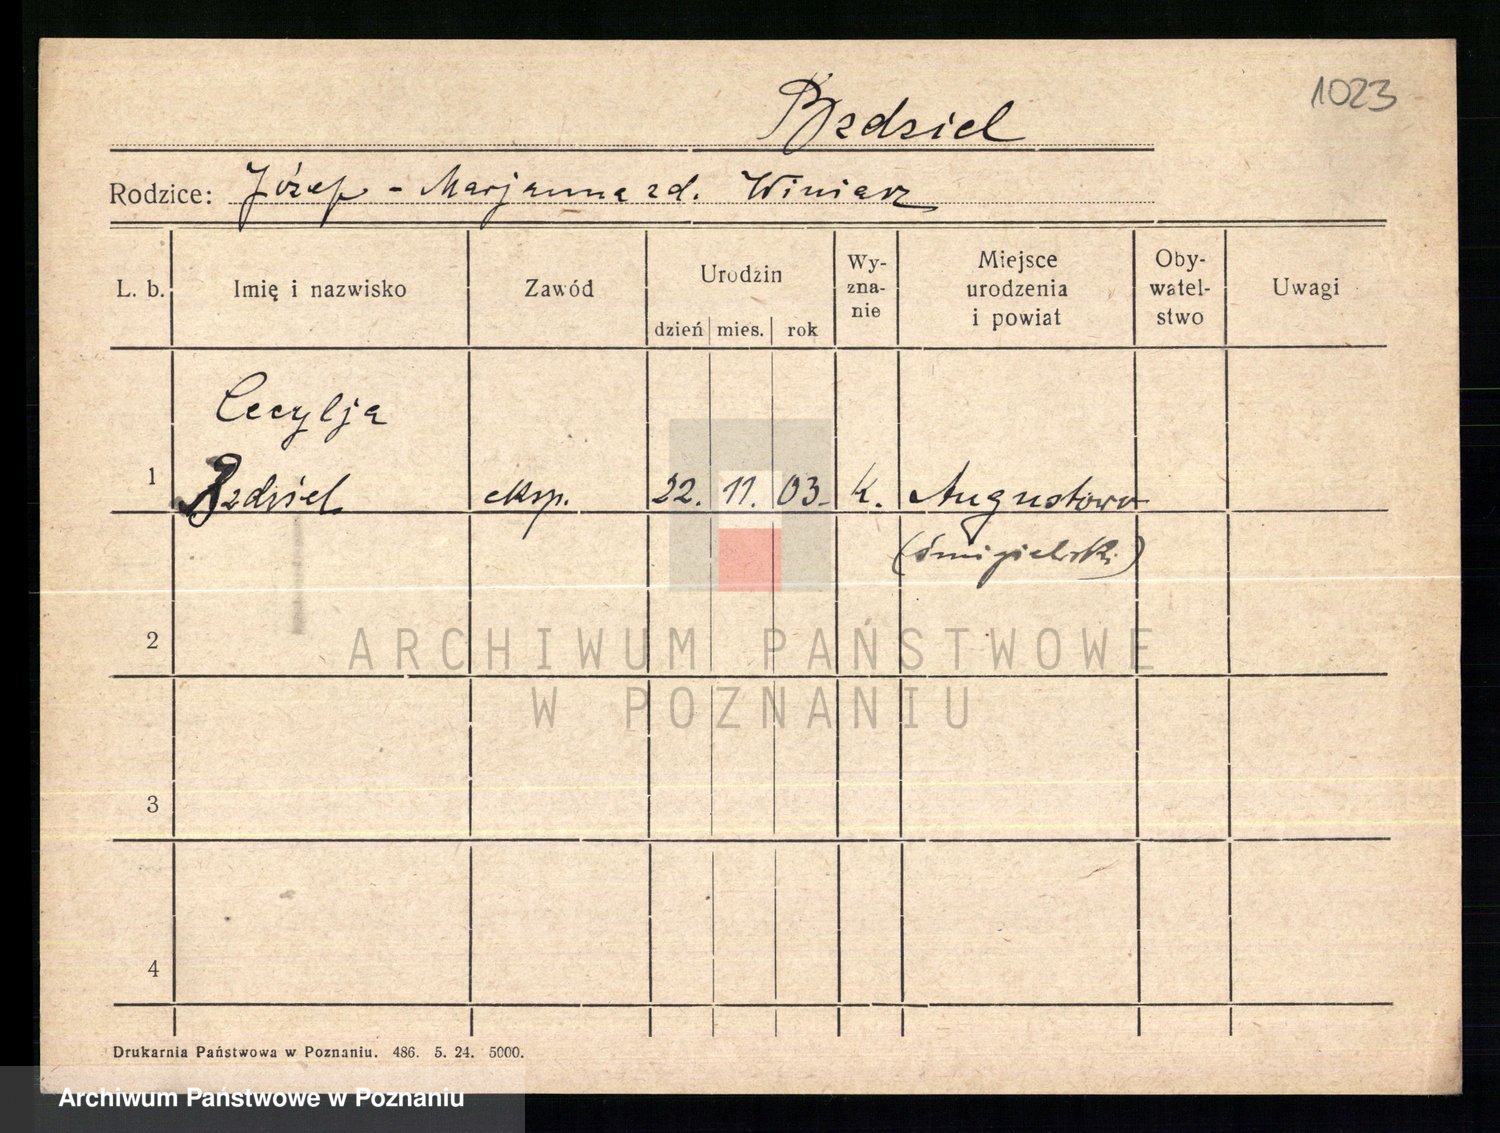 1023
Bzdziel
Rodzice: Józef - Marjanna zd. Winiarz
L. b. Imię i nazwisko Zawód Urodzin dzień mies. rok Wy-zna-nie Miejsce urodzenia i powiat Oby-watel-stwo Uwagi
Cecylja
1 Bzdziel eksp. 22. 11. 03. k. Augustowo
(śmigielski)
2
3
4
ARCHIWUM PAŃSTWOWE
W POZNANIU
Drukarnia Państwowa w Poznaniu. 486. 5. 24. 5000.
Archiwum Państwowe w Poznaniu